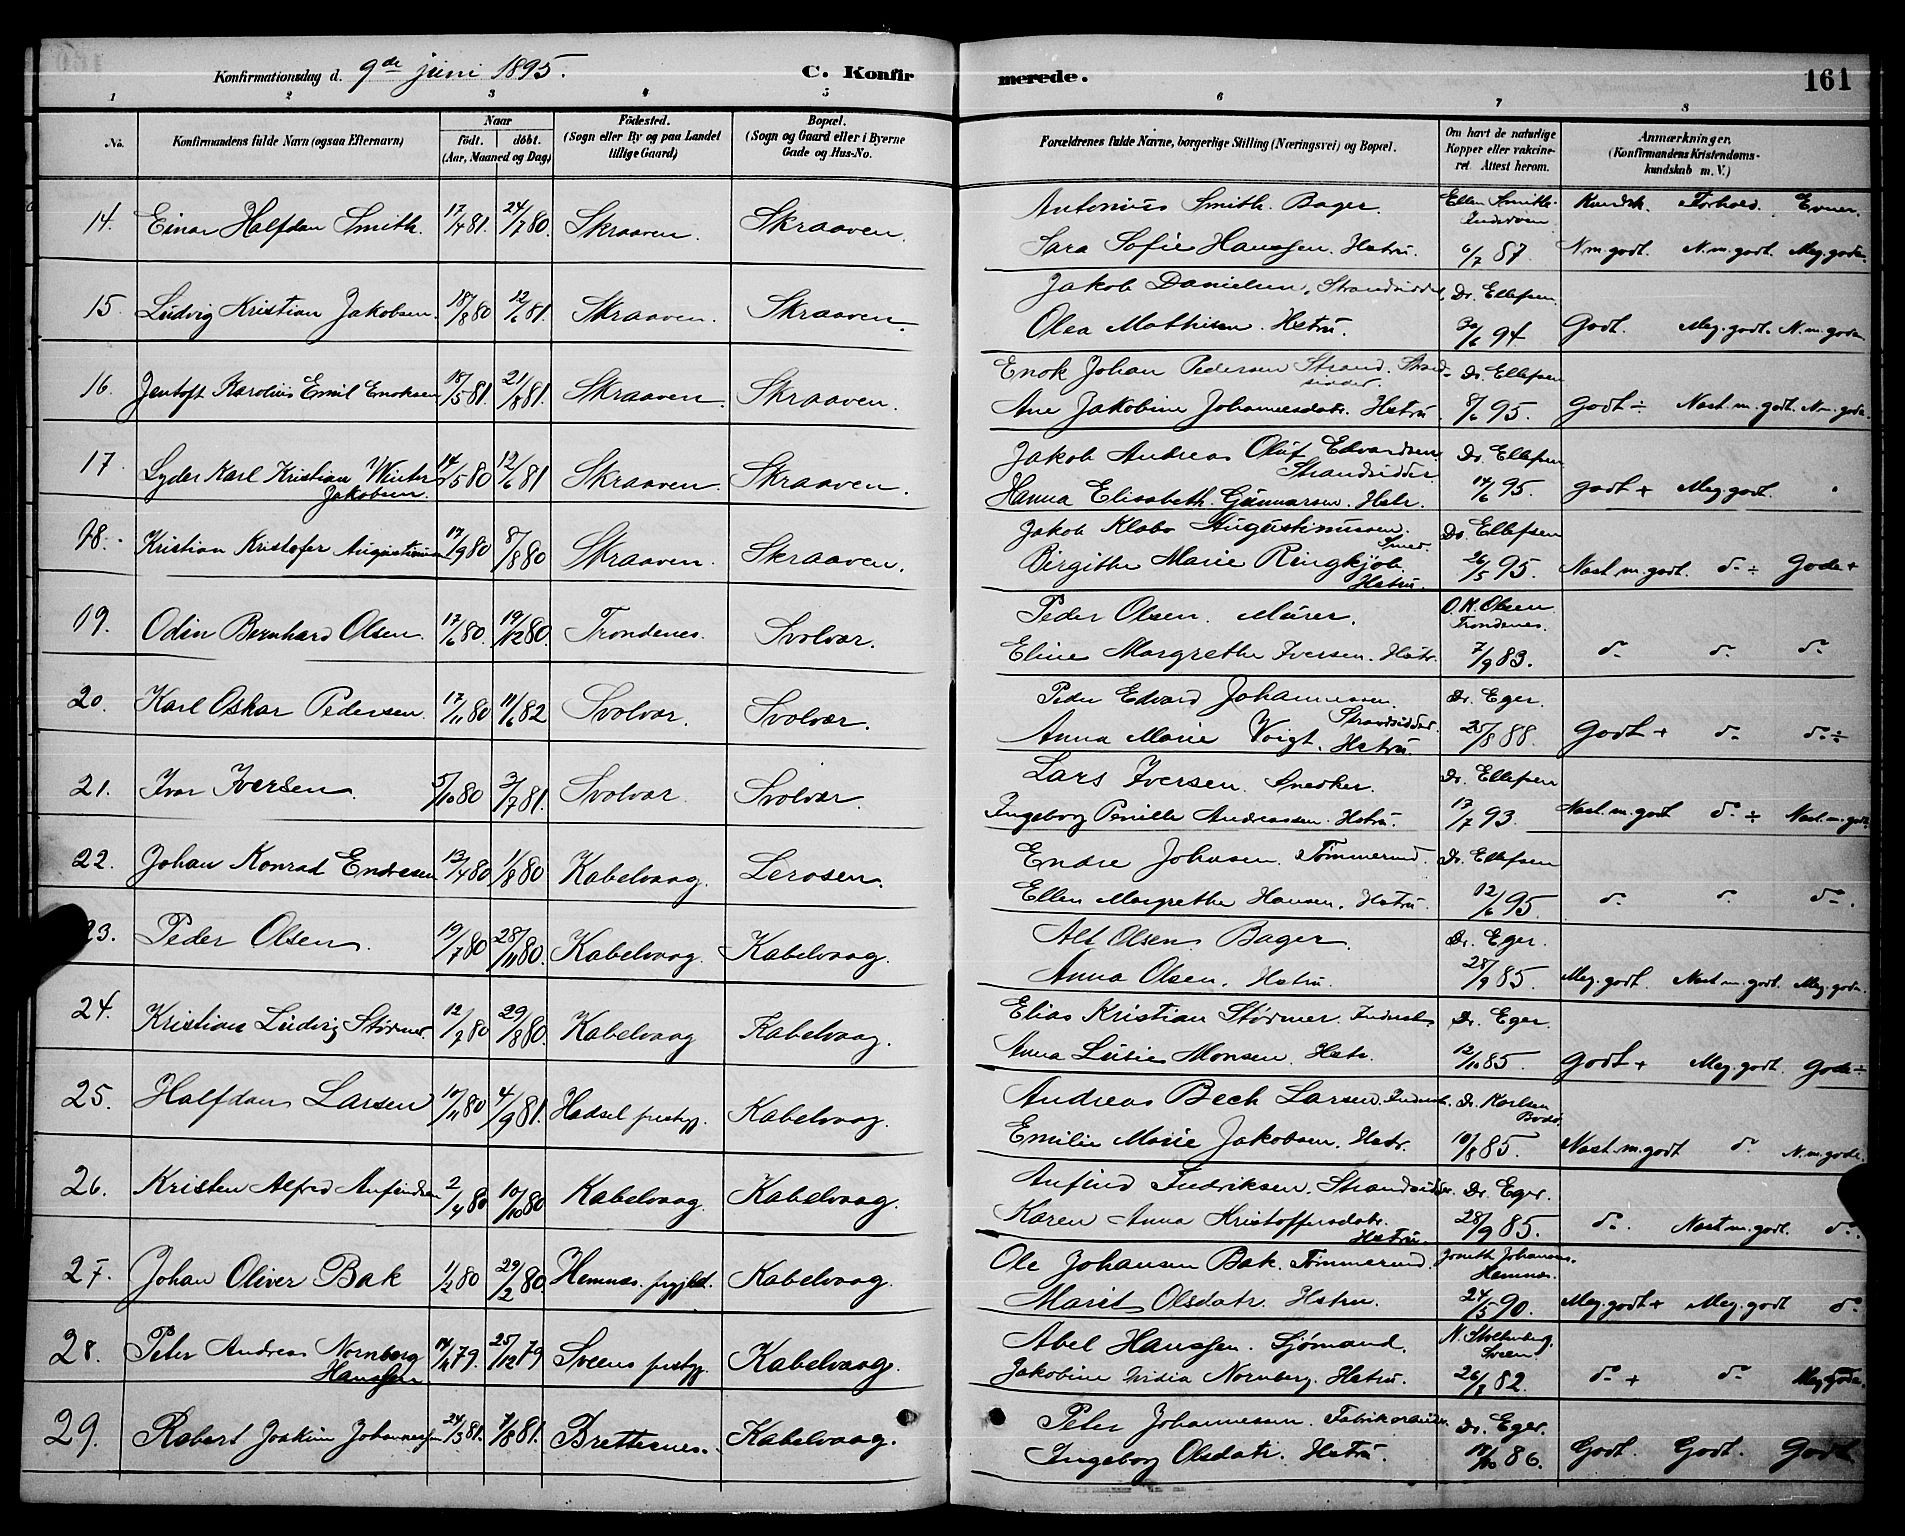 Konfirmationsdag d. 9de juni 1895. C. Konfir merede. 161
1 2 3 4 5 6 7 8
No. Konfirmandens fulde Navn (ogsaa Efternavn) Naar født. døbt. (Aar, Maaned og Dag) Fødested. (Sogn eller By og paa Landet tillige Gaard) Bopæl. (Sogn og Gaard eller i Byerne Gade og Hus-No. Forældrenes fulde Navne, borgerlige Stilling (Næringsvei) og Bopæl. Om havt de naturlige Kopper eller vakcineret. Attest herom. Anmærkninger. (Konfirmandens Kristendomskundskab m. V.)
14. Einar Halfdan Smith. 17/4 81. 24/7 80. Skraaven. Skraaven. Antonius Smith. Bager. Kundsk. Forhold. Evner.
Sara Sofie Hanssen. Hstru. 6/7 87 N.m.godt. N.m.godt. Meg.gode.
15. Ludvig Kristian Jakobsen. 18/8 80 12/6 81. Skraaven. Skraaven. Jakob Danielsen, Strandsidder, Dr. Ellefsen
Olea Mathisen. Hstru. 30/6 94 Godt. Meg.godt. N.m.gode
16. Jentoft Karolius Emil Enoksen 18/5 81. 21/8 81. Skraaven. Skraaven. Enok Johan Pedersen Strand. Strandsidder. Dr. Ellefsen
Ane Jakobine Johannesdatr. Hstru 8/6 95. Godt ÷ Nast.m.godt. N.m.gode.
17. Lyder Karl Kristian Winter Jakobsen. 14/5 80 12/6 81 Skraaven. Skraaven. Jakob Andreas Oluf Edvardsen Strandsidder Dr. Ellefsen
Hanna Elisabeth Gunnarsen. Hstr. 14/6 95. Godt + Meg.godt.
18. Kristian Kristofer Augustinussen 17/9 80 8/8 80 Skraaven. Skraaven. Jakob Klabo Augustinussen. Smed. Dr. Ellefsen
Birgithe Marie Ringkjöb. Hstru. 26/5 95. Nast.m.godt. do ÷ Gode +
19. Odin Bernhard Olsen. 17/6 80. 19/12 80. Trondenes. Svolvær. Peder Olsen. Murer. O.K. Olsen. Trondenes.
Eline Margrethe Iversen. Hstr. 7/9 83. do do do
20. Karl Oskar Pedersen. 17/11 80 11/6 82 Svolvær. Svolvær. Peder Edvard Johannessen. Strandsidder. Dr. Eger.
Anna Marie Voigt. Hstru. 25/8 88. Godt + do do ÷
21. Ivar Iversen. 5/10 80 3/7 81. Svolvær. Svolvær. Lars Iversen. Snedker. Dr. Ellefsen
Ingeborg Pernille Andreassen. Hstru. 17/7 93. Nast.m.godt do ÷ Nast.m.gode
22. Johan Konrad Endresen 13/4 80 1/8 80 Kabelvaag. Lerosen. Endre Johnsen. Tømmermd. Dr. Ellefsen
Ellen Margrethe Hansen. Hstru. 12/6 95. do do do.
23. Peder Olsen. 19/7 80 28/11 80. Kabelvaag. Kabelvaag. Alt Olsen. Bager. Dr. Eger.
Anna Olsen. Hstru. 28/9 85. Meg.godt. Nast.m.godt. Meg.gode.
24. Kristian Ludvig Størmer. 12/7 80 29/8 80. Kabelvaag Kabelvaag. Elias Kristian Størmer. Dr. Eger.
Anna Lusie Monsen. Hstr. 12/10 85. Godt + Meg.godt. Gode ÷
25. Halfdan Larsen 10/11 80 4/9 81. Hadsel prestgj. Kabelvaag. Andreas Bech Larsen. Dr. Karlsen Bodø.
Emilie Marie Jakobsen. Hstr. 10/8 85. Nast.m.godt do. N.m.gode.
26. Kristen Alfred Anfindsen 2/4 80 10/10 80 Kabelvaag. Kabelvaag. Anfind Fredriksen. Strandsidder. Dr. Eger.
Karen Anna Kristoffersdatr. Hstru. 28/9 85. do. Nast m.godt. do.
27. Johan Oliver Bak 1/2 80 29/2 80. Hemnæs. prgjld. Kabelvaag. Ole Johansen Bak. Tømmermd. Joneth Johansen. Hemnæs.
Marit Olsdatr. Hstru. 24/5 90. Meg.godt + Meg.godt do
28. Peter Andreas Nornberg Hanssen 14/11 79. 25/12 79 Sveens prestgj. Kabelvaag. Abel Hanssen. Sjømand. N. Stoltenberg. Sveen.
Jakobine Nornberg. Hstru. 26/7 82. do + do Meg.gode.
29. Robert Joakim Johannessen 24/3 81. 7/8 81. Brettesnes. Kabelvaag. Peter Johannessen. Fabrikarbeider. Dr. Eger.
Ingeborg Olsdatr. Hstru. 18/10 86. Godt. Godt. Godt.